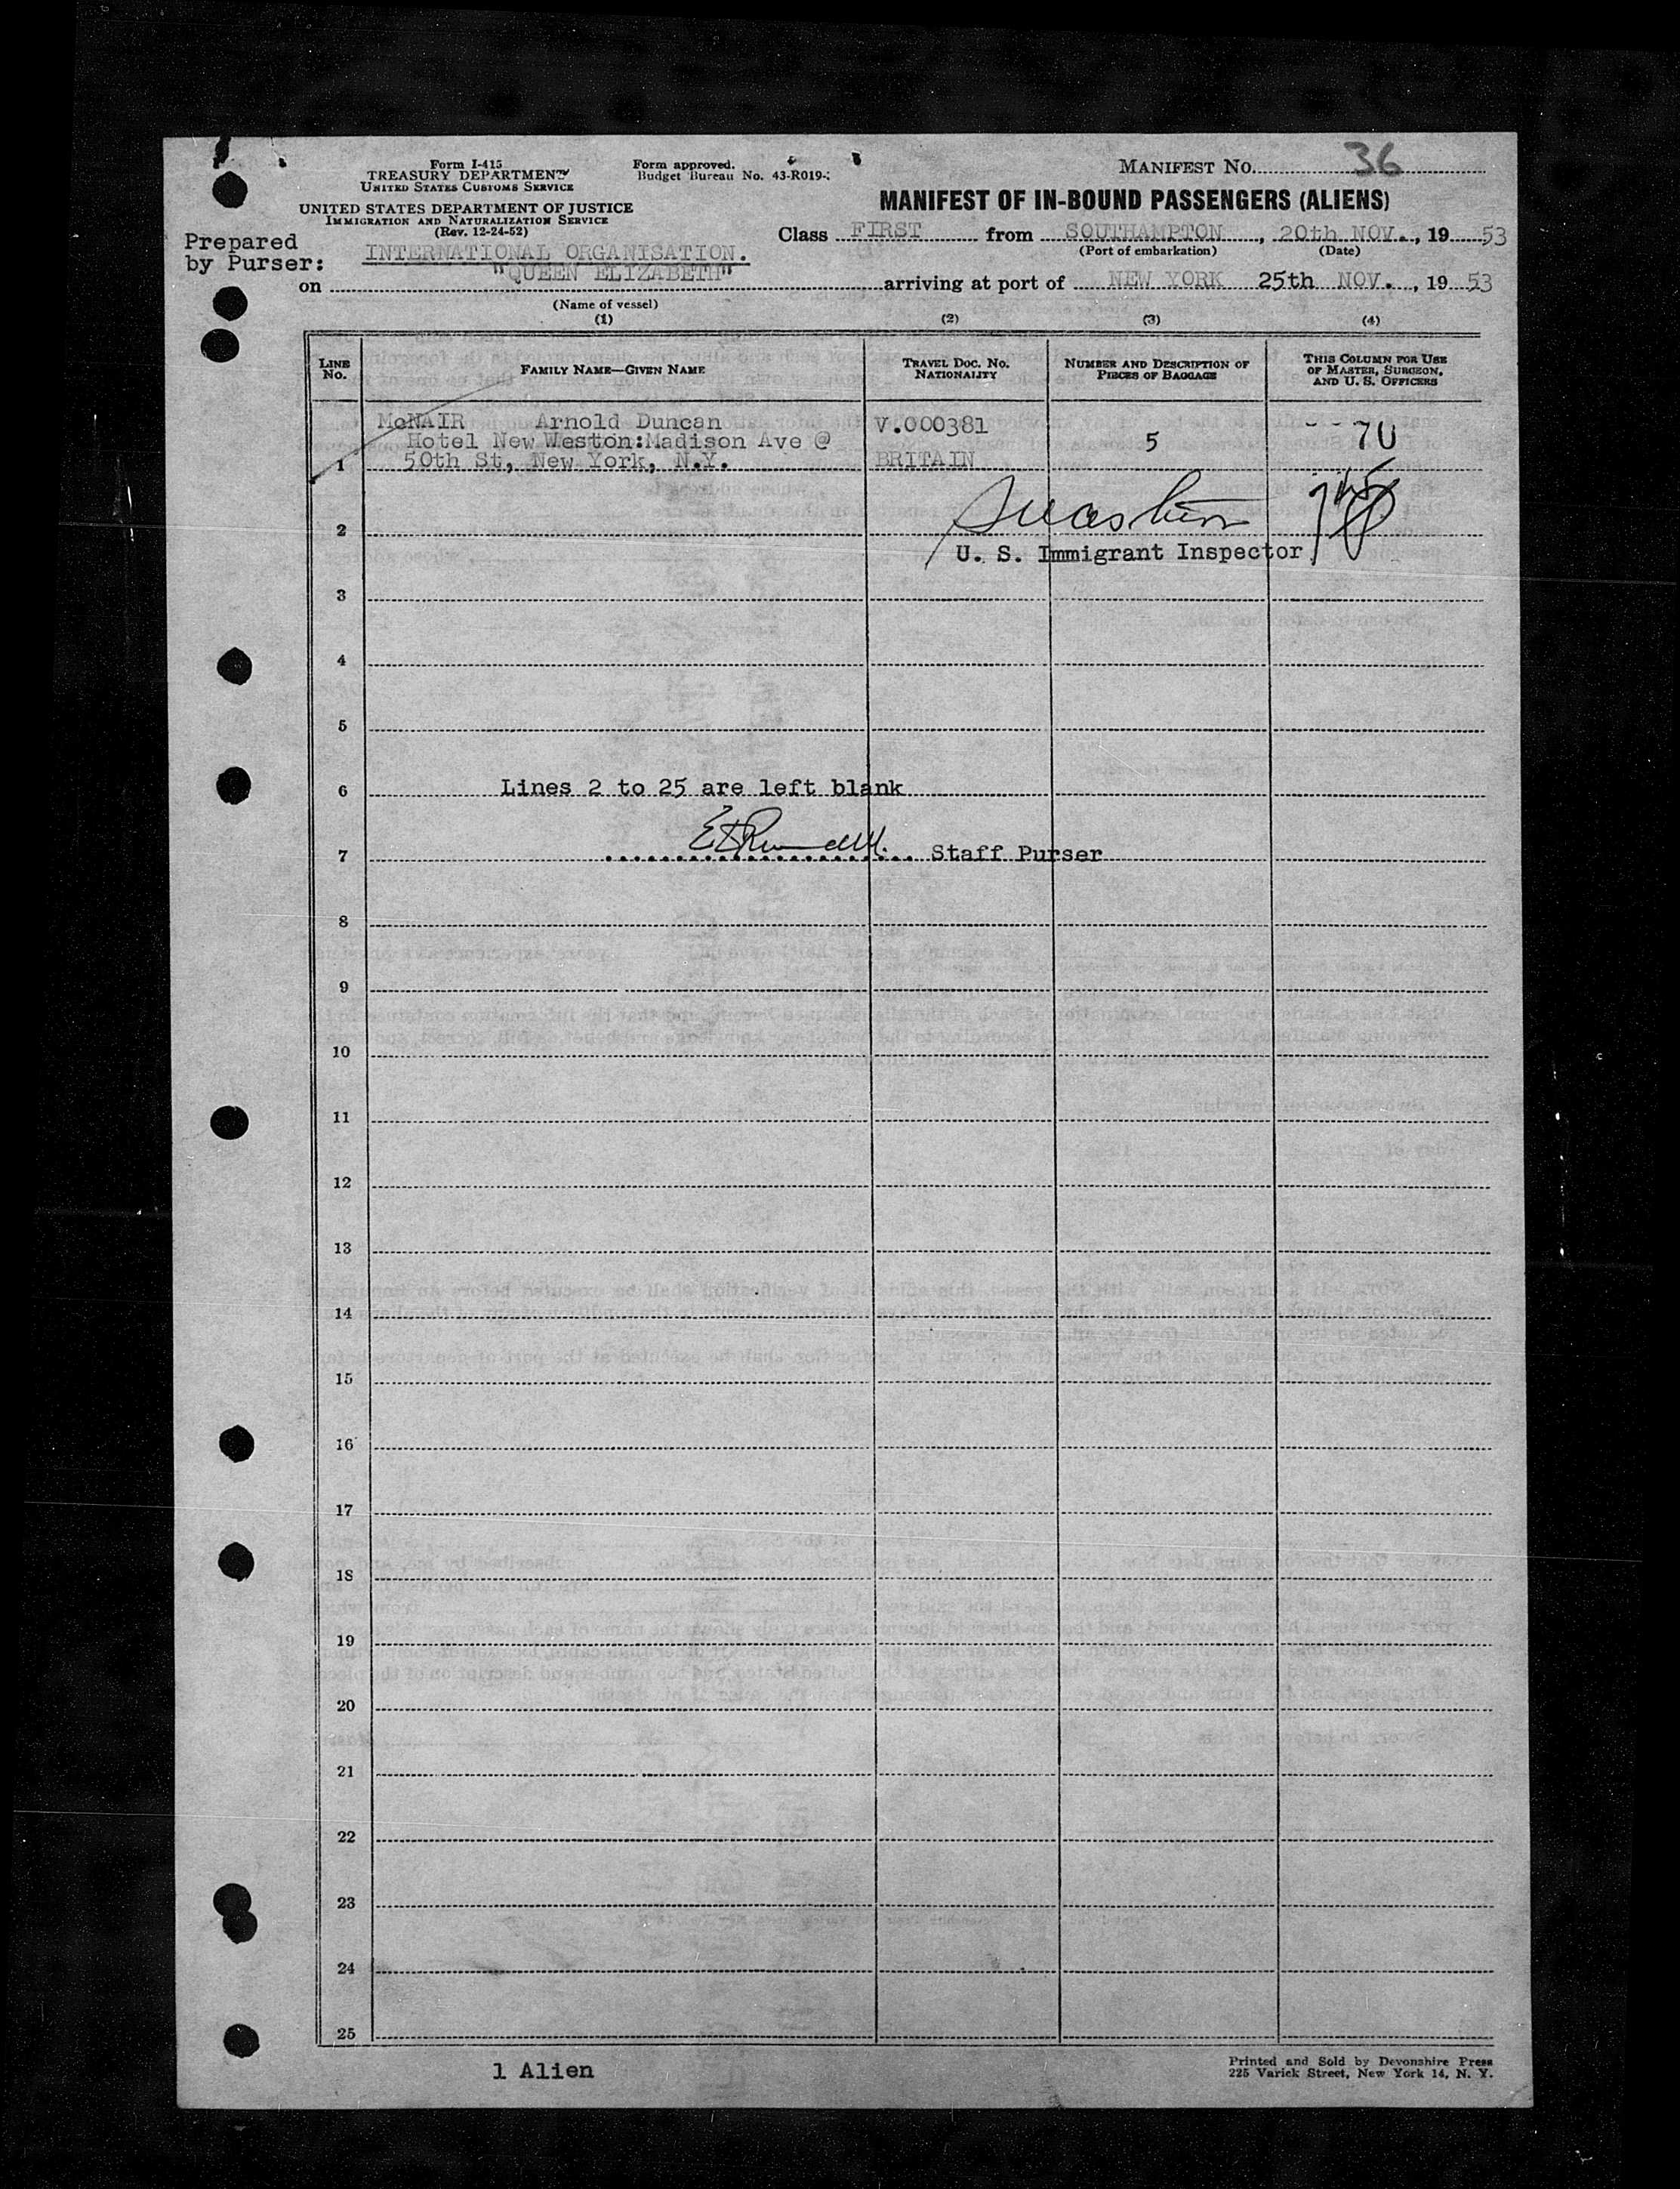 Form I-415
TREASURY DEPARTMENT
UNITED STATES CUSTOMS SERVICE
UNITED STATES DEPARTMENT OF JUSTICE
IMMIGRATION AND NATURALIZATION SERVICE
(Rev. 12-24-52)
Form approved.
Budget Bureau No. 43-R019-
MANIFEST NO. 36
MANIFEST OF IN-BOUND PASSENGERS (ALIENS)
Class FIRST from SOUTHAMPTON, 20th NOV., 1953
(Port of embarkation) (Date)
Prepared
by Purser:
INTERNATIONAL ORGANISATION.
on "QUEEN ELIZABETH" arriving at port of NEW YORK 25th NOV., 1953
(Name of vessel)
(1) (2) (3) (4)
LINE NO.
FAMILY NAME—GIVEN NAME
TRAVEL DOC. NO.
NATIONALITY
NUMBER AND DESCRIPTION OF
PIECES OF BAGGAGE
THIS COLUMN FOR USE
OF MASTER, SURGEON,
AND U. S. OFFICERS
McNAIR Arnold Duncan V.000381
Hotel New Weston:Madison Ave @ 5 70
1 50th St, New York, N.Y. BRITAIN
2
U. S. Immigrant Inspector
3
4
5
6 Lines 2 to 25 are left blank
7 Staff Purser
8
9
10
11
12
13
14
15
16
17
18
19
20
21
22
23
24
25
1 Alien
Printed and Sold by Devonshire Press
225 Varick Street, New York 14, N. Y.